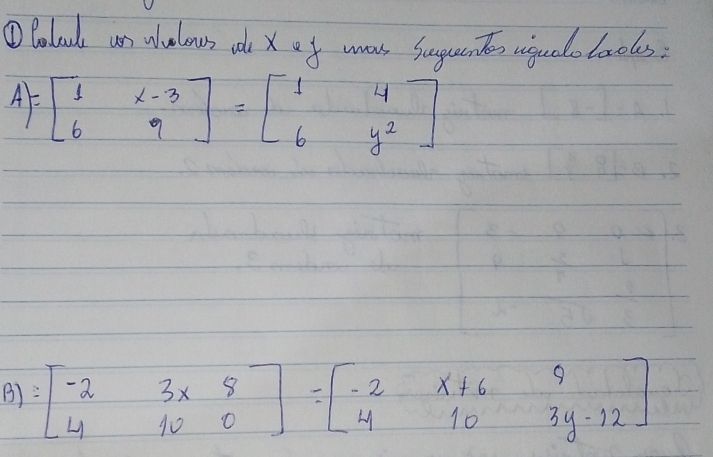 ① Calcule os Valores de X e y nas Seguintes igualdades:
A) = [ 1 x-3 ] = [ 1 4 ]
[ 6 9 ] [ 6 y² ]
B) = [ -2 3x 8 ] = [ -2 x+6 9 ]
[ 4 10 0 ] [ 4 10 3y-12 ]